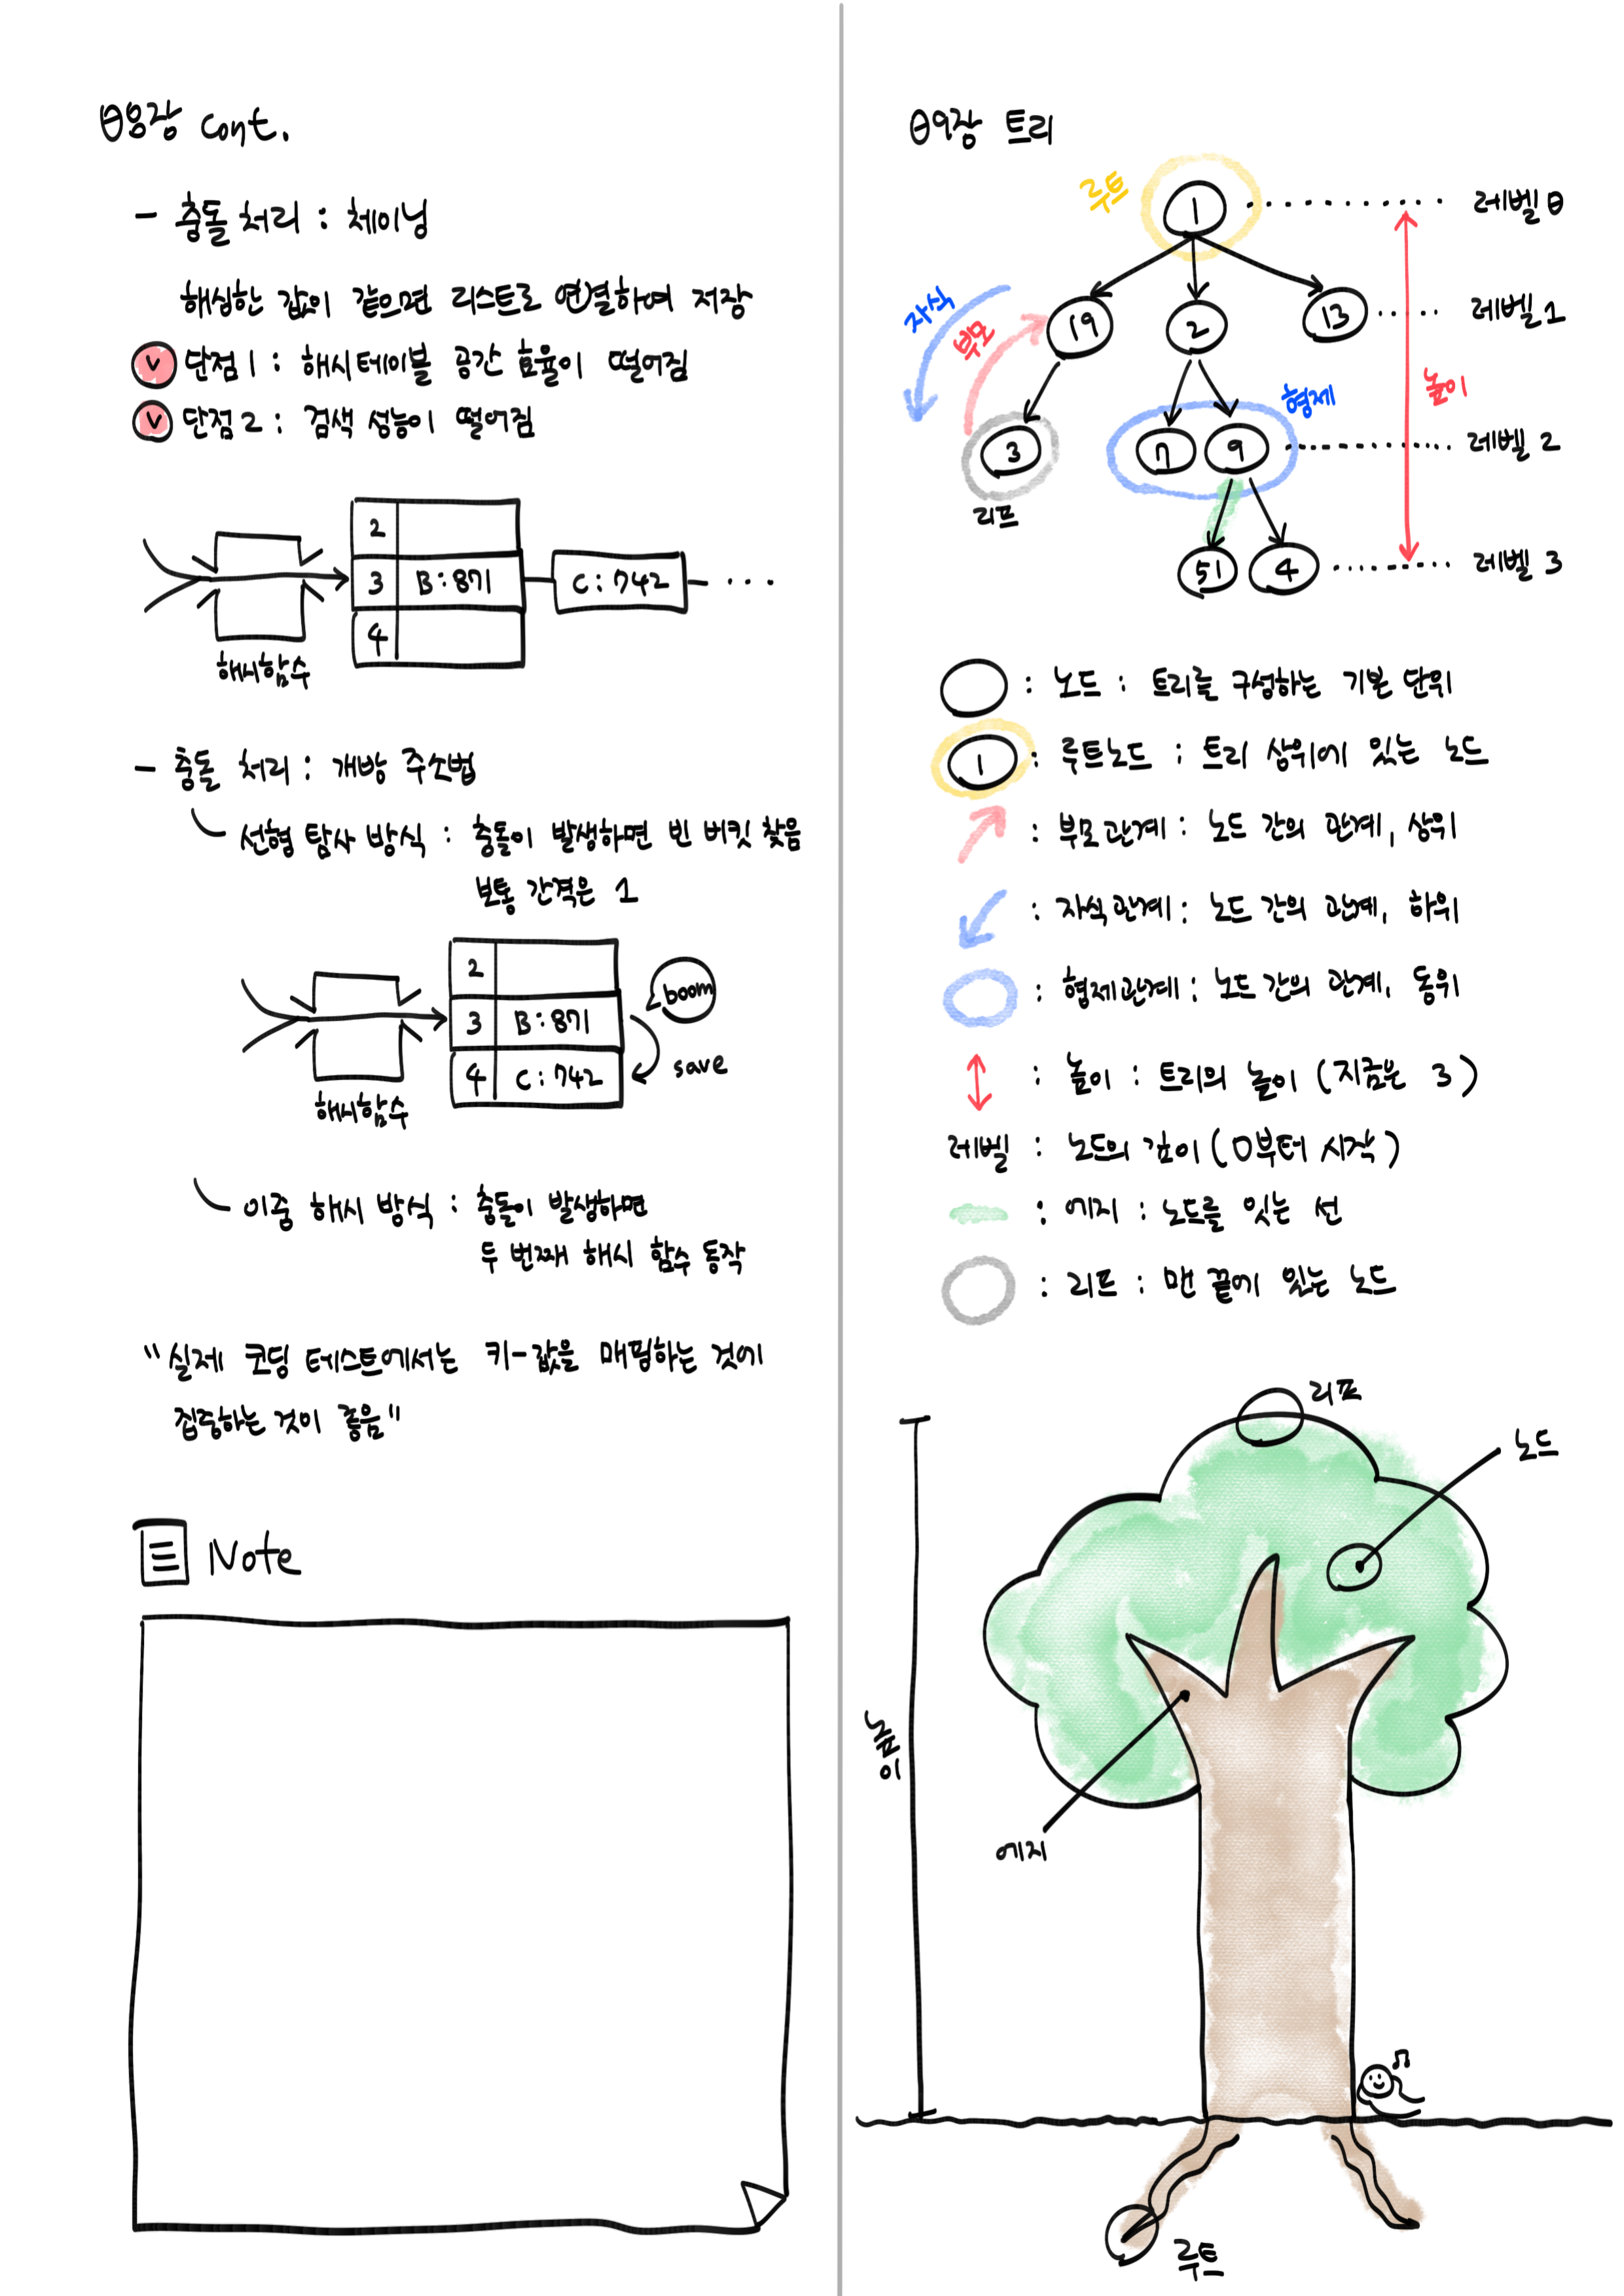 08장 cont.
- 충돌 처리 : 체이닝
해싱한 값이 같으면 리스트로 연결하여 저장
v 단점1 : 해시테이블 공간 효율이 떨어짐
v 단점2 : 검색 성능이 떨어짐
2
3 B:871 C:742 ...
4
해시함수
- 충돌 처리 : 개방 주소법
선형 탐사 방식 : 충돌이 발생하면 빈 버킷 찾음
보통 간격은 1
2
boom
3 B:871
4 C:742 save
해시함수
이중 해시 방식 : 충돌이 발생하면
두 번째 해시 함수 동작
"실제 코딩 테스트에서는 키-값을 매핑하는 것에
집중하는 것이 좋음"
Note
09장 트리
루트 1 레벨 0
자식 부모 19 2 13 레벨 1
높이
형제
3 7 9 레벨 2
리프
51 4 레벨 3
: 노드 : 트리를 구성하는 기본 단위
1 : 루트노드 : 트리 상위에 있는 노드
: 부모관계 : 노드 간의 관계, 상위
: 자식관계 : 노드 간의 관계, 하위
: 형제관계 : 노드 간의 관계, 동위
: 높이 : 트리의 높이 (지금은 3)
레벨 : 노드의 깊이 (0부터 시작)
: 에지 : 노드를 잇는 선
: 리프 : 맨 끝에 있는 노드
리프
노드
높이
에지
루트